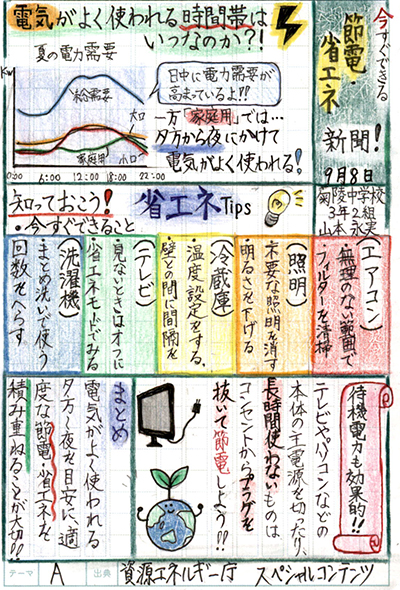 今すぐできる
節電・
省エネ
新聞!
9月8日
菊陵中学校
3年2組
山本 永実
電気がよく使われる時間帯は
いつなのか?!
夏の電力需要
Kw
総需要
大口
小口
家庭用
0:00 6:00 12:00 18:00 22:00
日中に電力需要が
高まっているよ!!
一方「家庭用」では…
夕方から夜にかけて
電気がよく使われる!
知っておこう!
・今すぐできること
省エネTips
(エアコン)
・無理のない範囲で
フィルターを清掃
(照明)
・不要な照明を消す
・明るさを下げる
(冷蔵庫)
・温度設定をする.
・壁との間に間隔を
(テレビ)
・見ないときはオフに
・省エネモードでみる
(洗濯機)
・まとめ洗いで使う
回数をへらす
待機電力も効果的!!
テレビやパソコンなどの
本体の主電源を切ったり、
長時間使わないものは
コンセントからプラグを
抜いて節電しよう!!
まとめ
電気がよく使われる
夕方〜夜を目安に、適
度な節電・省エネを
積み重ねることが大切!!
テーマ A 出典 資源エネルギー庁 スペシャルコンテンツ